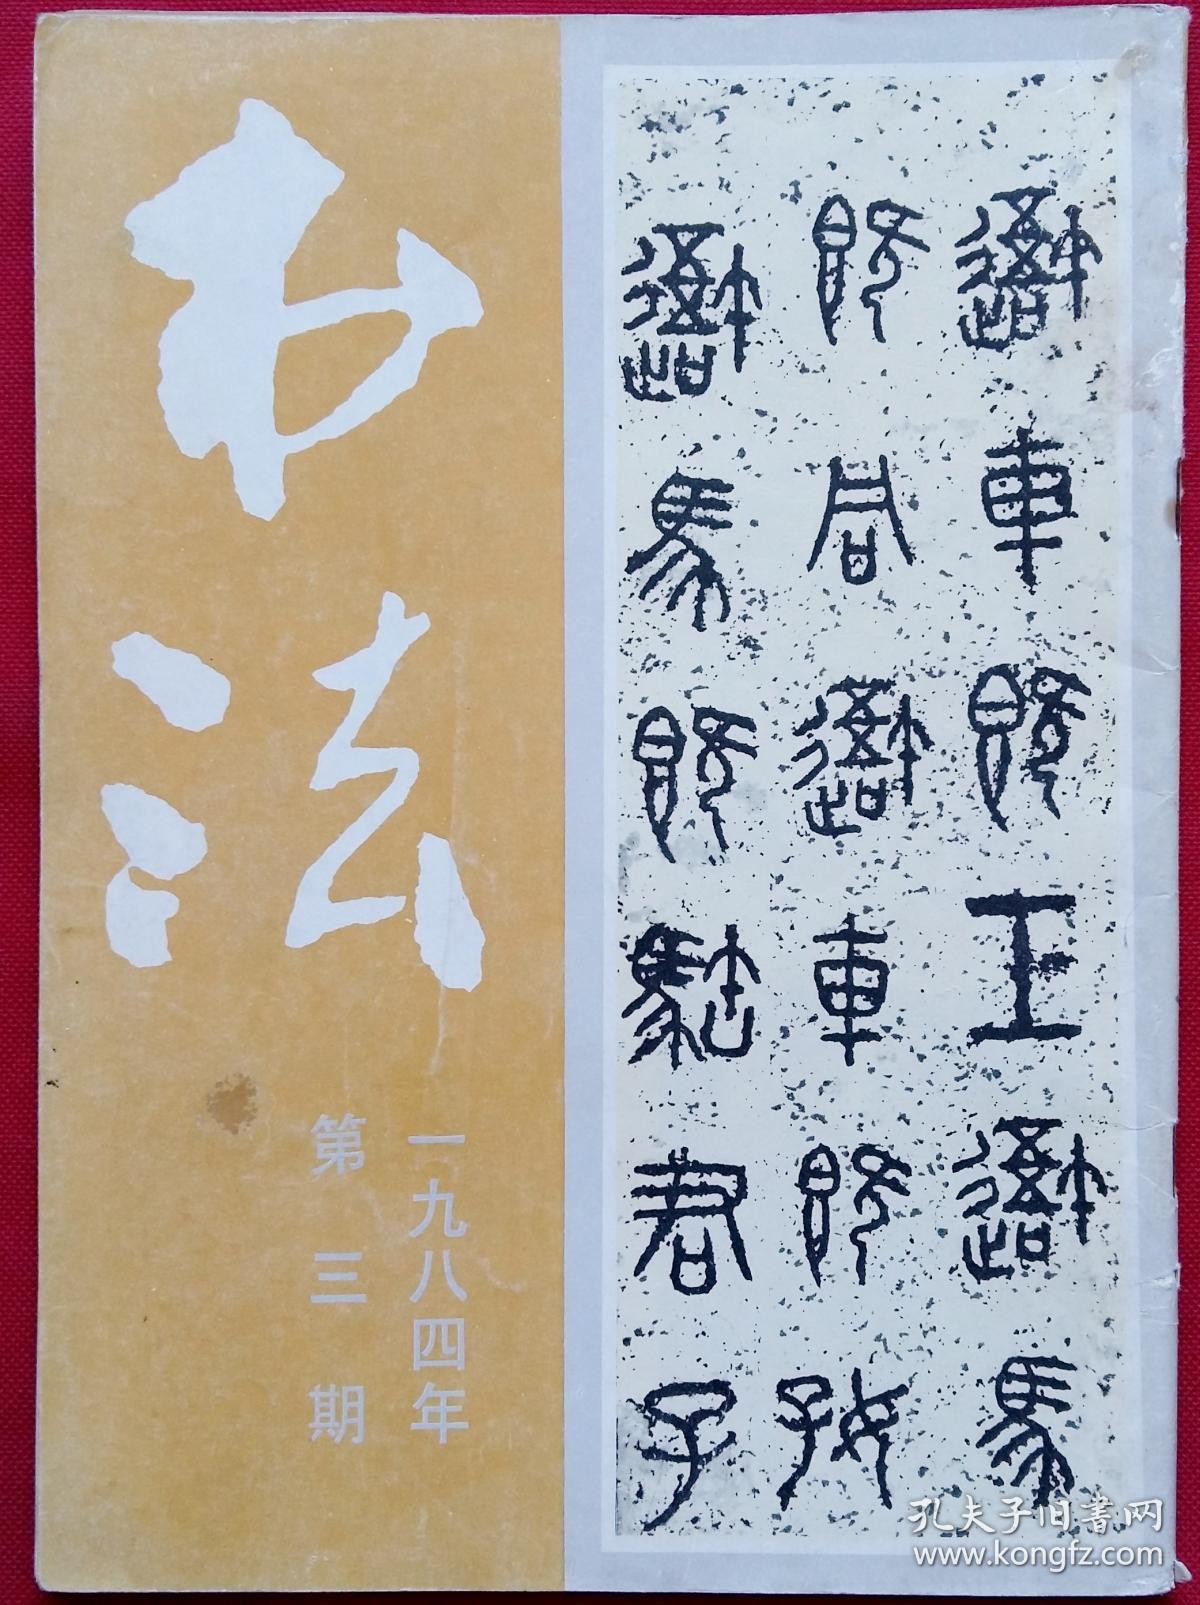 书法
一九八四年
第三期
車既工馬
既同車既好
馬既君子
孔夫子旧書网
www.kongfz.com